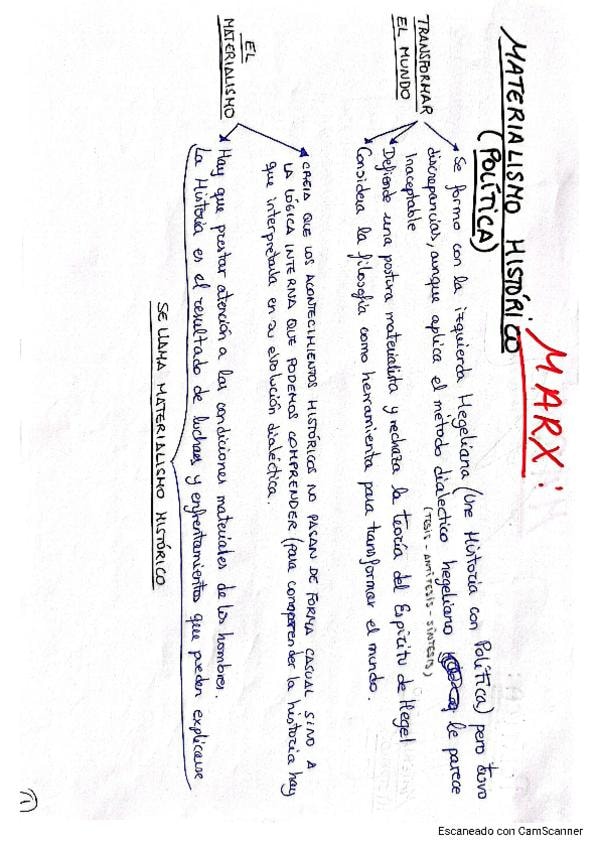 MARX:
MATERIALISMO HISTÓRICO
(POLÍTICA)
TRANSFORMAR
EL MUNDO
Se formo con la izquierda Hegeliana (Une Historia con Política) pero tuvo
discrepancias, aunque aplica el método dialectico hegeliano le parece
(TESIS - ANTITESIS - SÍNTESIS)
Inaceptable
Defiende una postura materialista y rechaza la teoría del Espíritu de Hegel
Considera la filosofía como herramienta para transformar el mundo.
EL
MATERIALISMO
CREIA QUE LOS ACONTECIMIENTOS HISTÓRICOS NO PASAN DE FORMA CASUAL SINO A
LA LÓGICA INTERNA QUE PODEMOS COMPRENDER (para comprender la historia hay
que interpretarla en su evolución dialéctica.
Hay que prestar atención a las condiciones materiales de los hombres.
La Historia es el resultado de luchas y enfrentamientos que pueden explicarse
SE LLAMA MATERIALISMO HISTÓRICO
1
Escaneado con CamScanner